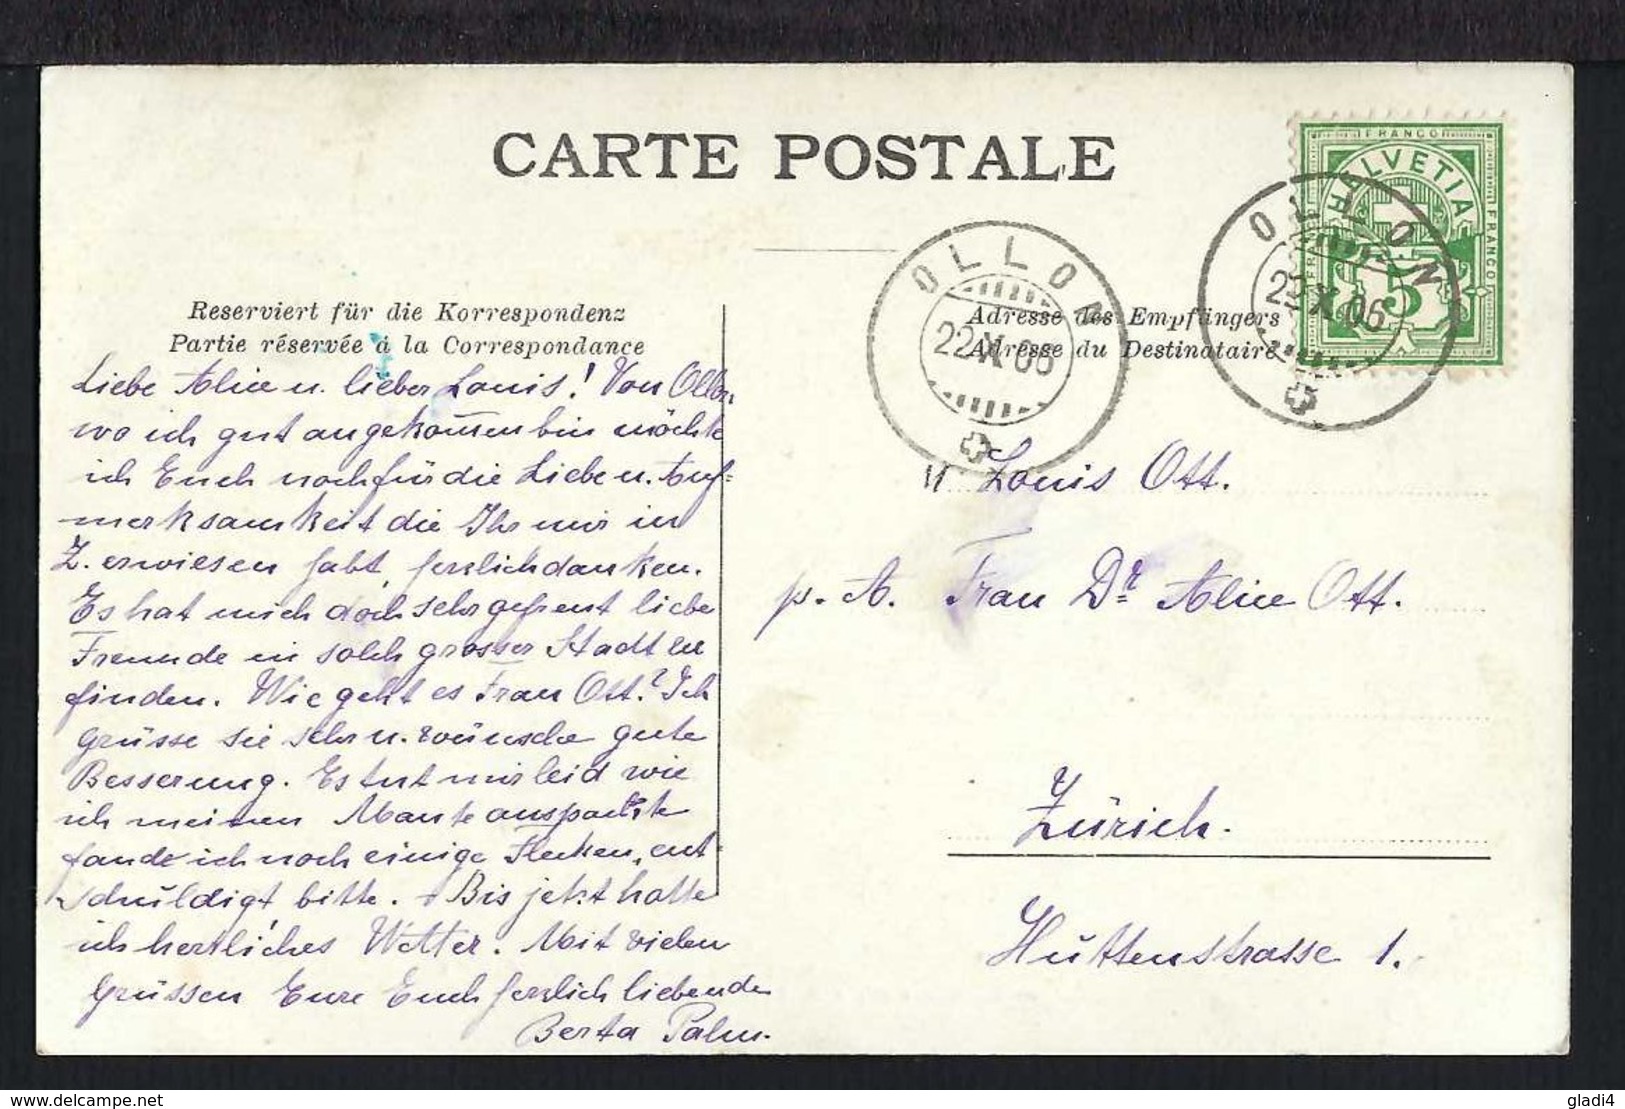 CARTE POSTALE
FRANCO
HELVETIA
FRANCO
FRANCO
5
OLLON
22 X 06
OLLON
22 X 06
Reserviert für die Korrespondenz
Partie réservée à la Correspondance
Adresse des Empfängers
Adresse du Destinataire
Liebe Alice u. lieber Louis! Von Ollon
wo ich gut angekom̄en bin möchte
ich Euch noch für die Liebe u. Auf=
merksamkeit die Ihr mir in
Z. erwiesen habt, herzlich danken.
Es hat mich doch sehr gefreut liebe
Freunde in solch grosser Stadt zu
finden. Wie geht es Frau Ott? Ich
Grüsse sie sehr u. wünsche gute
Besserung. Es tut mir leid wie
ich meinen Mante auspackte
fand ich noch einige Flecken, ent=
schuldigt bitte. Bis jetzt hatte
ich herrliches Wetter. Mit vielen
Grüssen Eure Euch herzlich liebende
Berta Palm.
Louis Ott.
p. A. Frau Dr Alice Ott.
Zürich.
Huttenstrasse 1.
delcampe.net
gladi4